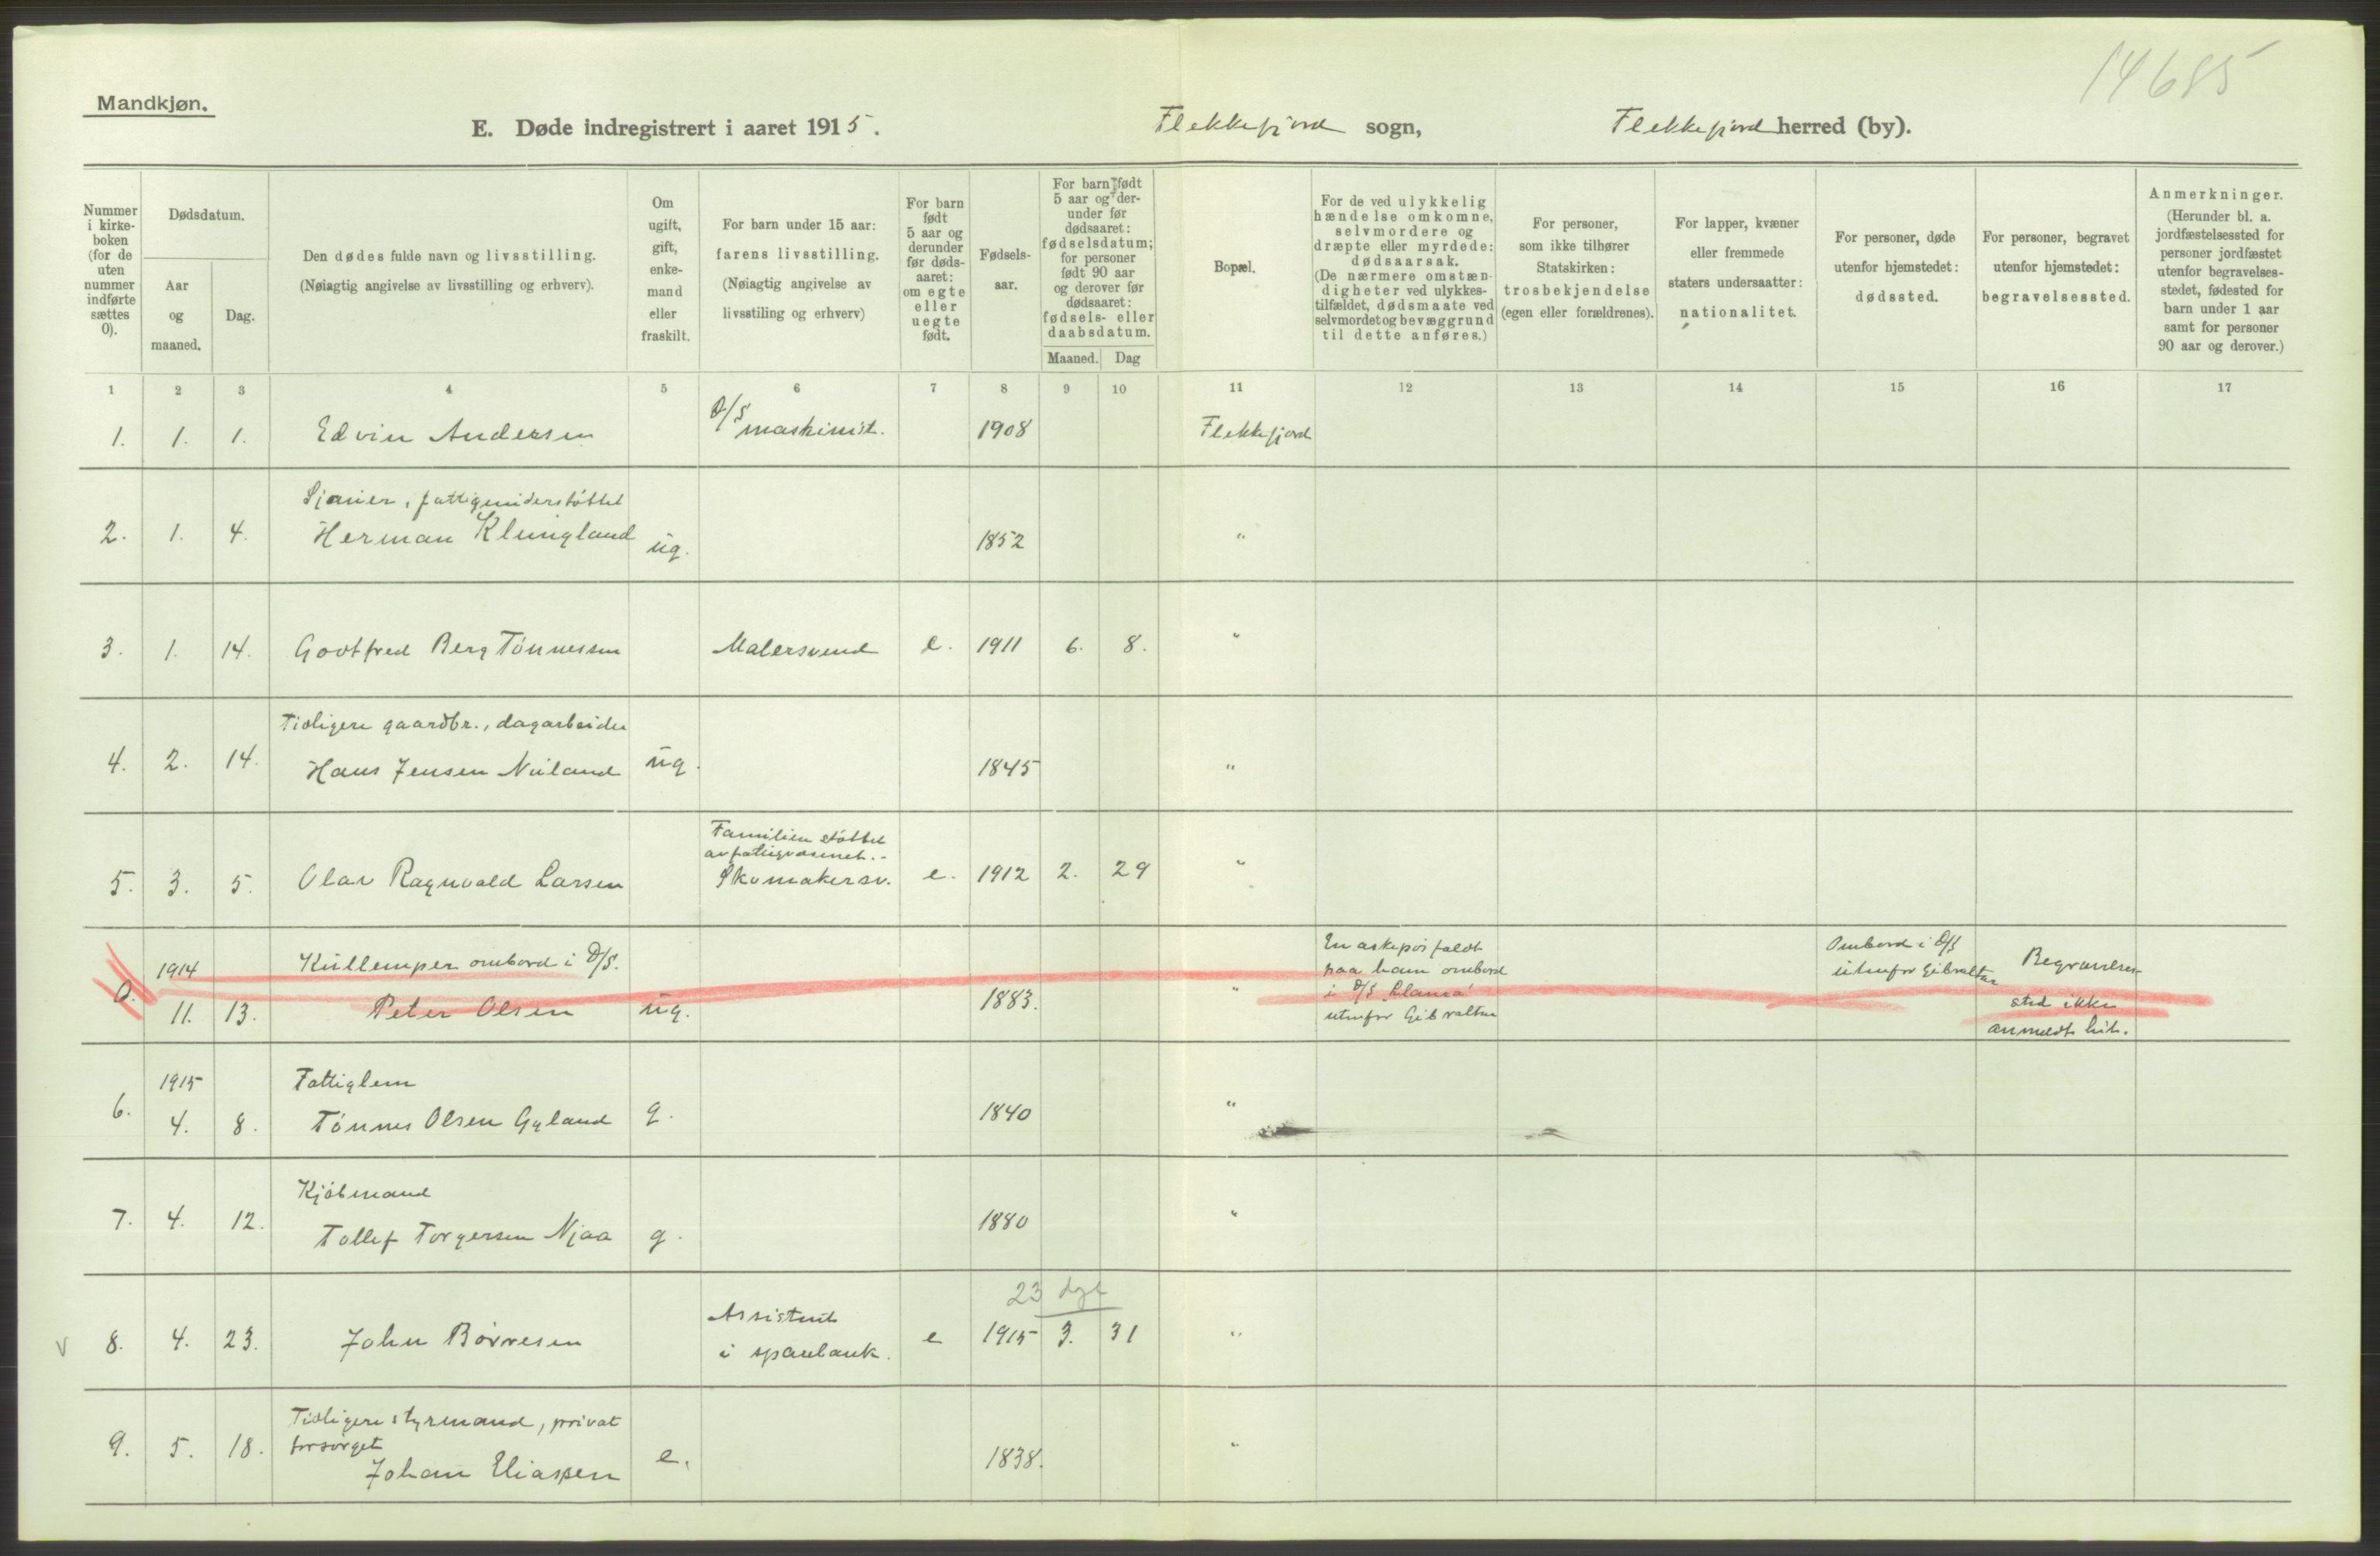 14685
Mandkjøn.
E. Døde indregistrert i aaret 1915. Flekkefjord sogn, Flekkefjord herred (by).
Nummer i kirke-boken (for de uten nummer indførte sættes 0).
Dødsdatum.
Aar og maaned.
Dag.
Den dødes fulde navn og livsstilling.
(Nøiagtig angivelse av livsstilling og erhverv).
Om ugift, gift, enke-mand eller fraskilt.
For barn under 15 aar: farens livsstilling.
(Nøiagtig angivelse av livsstiling og erhverv)
For barn født 5 aar og derunder før døds-aaret: om egte eller uegte født.
Fødsels-aar.
For barn født 5 aar og der-under før dødsaaret: fødselsdatum; for personer født 90 aar og derover før dødsaaret: fødsels- eller daabsdatum.
Maaned. Dag
Bopæl.
For de ved ulykkelig hændelse omkomne, selvmordere og dræpte eller myrdede: dødsaarsak.
(De nærmere omstæn-digheter ved ulykkes-tilfældet, dødsmaate ved selvmordet og bevæggrund til dette anføres.)
For personer, som ikke tilhører Statskirken: trosbekjendelse (egen eller forældrenes).
For lapper, kvæner eller fremmede staters undersaatter: nationalitet.
For personer, døde utenfor hjemstedet: dødssted.
For personer, begravet utenfor hjemstedet: begravelsessted.
Anmerkninger.
(Herunder bl. a. jordfæstelsessted for personer jordfæstet utenfor begravelses-stedet, fødested for barn under 1 aar samt for personer 90 aar og derover.)
1 2 3 4 5 6 7 8 9 10 11 12 13 14 15 16 17
1. 1. 1. Edvin Andersen D/S maskinist. 1908 Flekkefjord
Sjauer, fattigunderstöttet
2. 1. 4. Herman Klungland ug. 1852 "
3. 1. 14. Godtfred Berg Tönnessen Malersvend e. 1911 6. 8. "
Tidligere gaardbr., dagarbeider
4. 2. 14. Hans Jensen Nuland ug. 1845 "
Familien stöttet
av fattigvæsenet.-
5. 3. 5. Olav Ragnvald Larsen Skomakersv. e. 1912 2. 29 "
1914 Kullemper ombord i D/S.
0. 11. 13. Peter Olsen ug. 1883. "
En askepös faldt
paa ham ombord
i D/S
utenfor Gibraltar
Ombord i D/S
utenfor Gibraltar
Begravelses-
sted ikke
anmeldt hit.
1915 Fattiglem
6. 4. 8. Tönnes Olsen Gyland g. 1840 "
Kjöbmand
7. 4. 12. Tollef Torgersen Njaa g. 1880 "
23 dgr
Assistent
v 8. 4. 23. John Börresen i sparebank. e 1915 3. 31 "
Tidligere styrmand, privat
forsörget
9. 5. 18. Johan Eliassen e. 1838. "